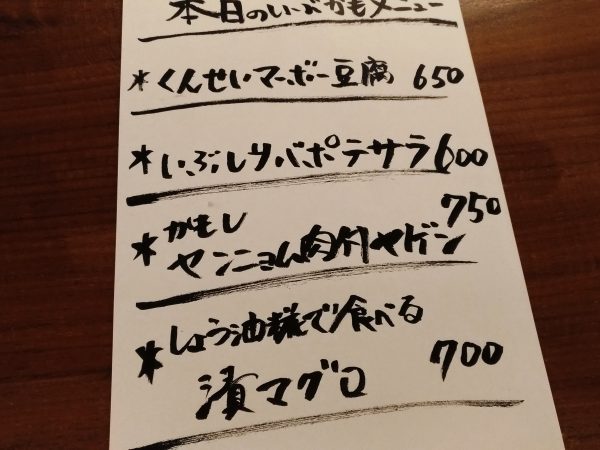 本日のいぶかもメニュー
*くんせいマーボー豆腐 650
*いぶしリバポテサラ 600
750
*かもし
ヤンニョム肉付ヤゲン
*しょう油糀で食べる
漬マグロ 700